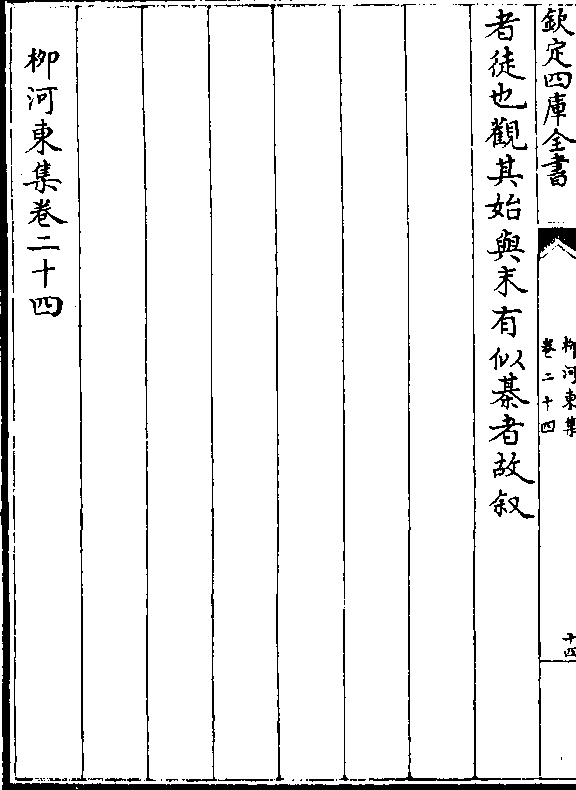 欽定四庫全書
柳河東集
卷二十四
十四
者徒也觀其始與末有似棊者故叙
柳河東集卷二十四